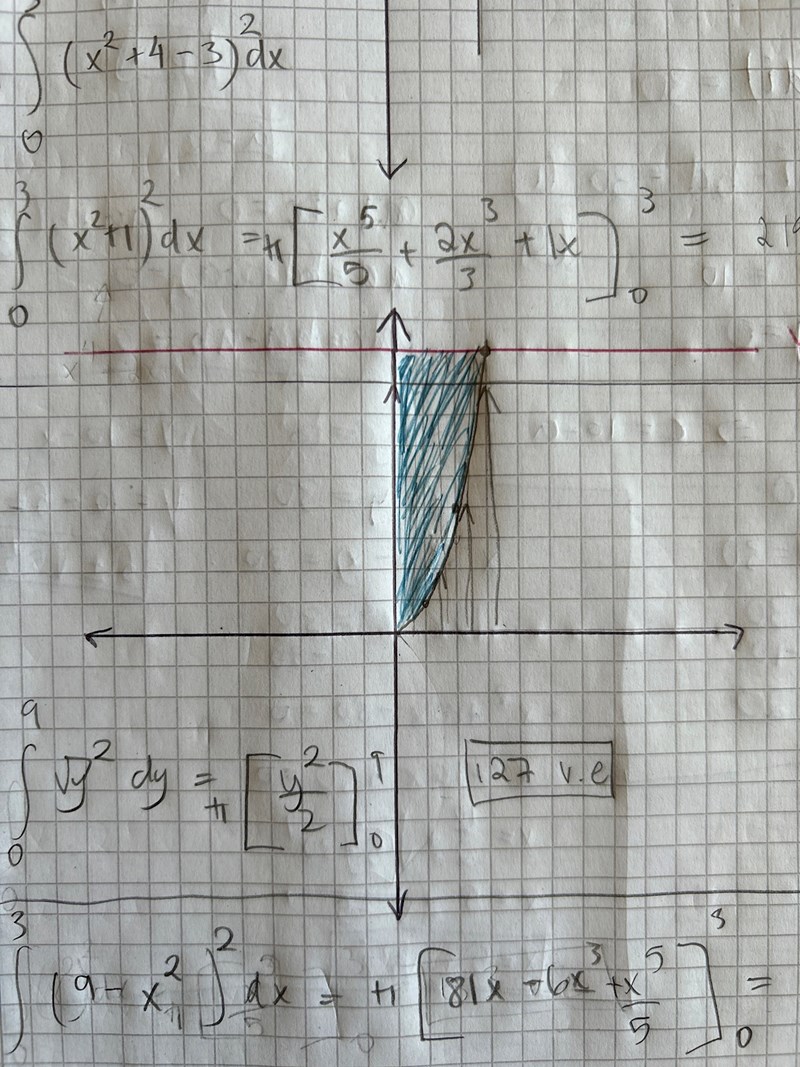 ∫₀ (x² + 4 - 3)² dx
∫₀³ (x² + 1)² dx = π [x⁵/5 + 2x³/3 + 1x]₀³ = 21
∫₀⁹ √y² dy = π [y²/2]₀⁹
127 v.e
∫₀³ (9 - x²)² dx = π [81x - 6x³ + x⁵/5]₀³ =